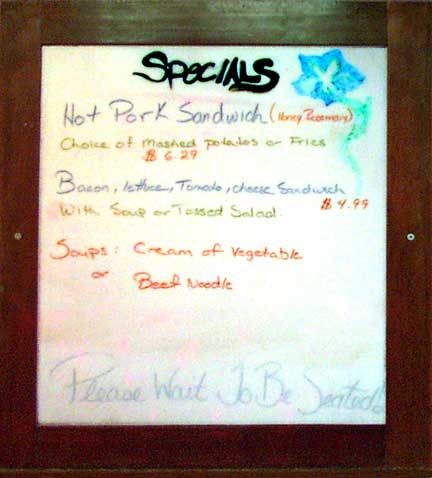 Specials
Hot Pork Sandwich (Honey Rosemary)
Choice of Mashed potatoes or Fries
$ 6.29
Bacon, lettuce, Tomato, cheese Sandwich
With Soup or Tossed Salad $ 4.99
Soups: Cream of Vegetable
or Beef Noodle
Please Wait To Be Seated!